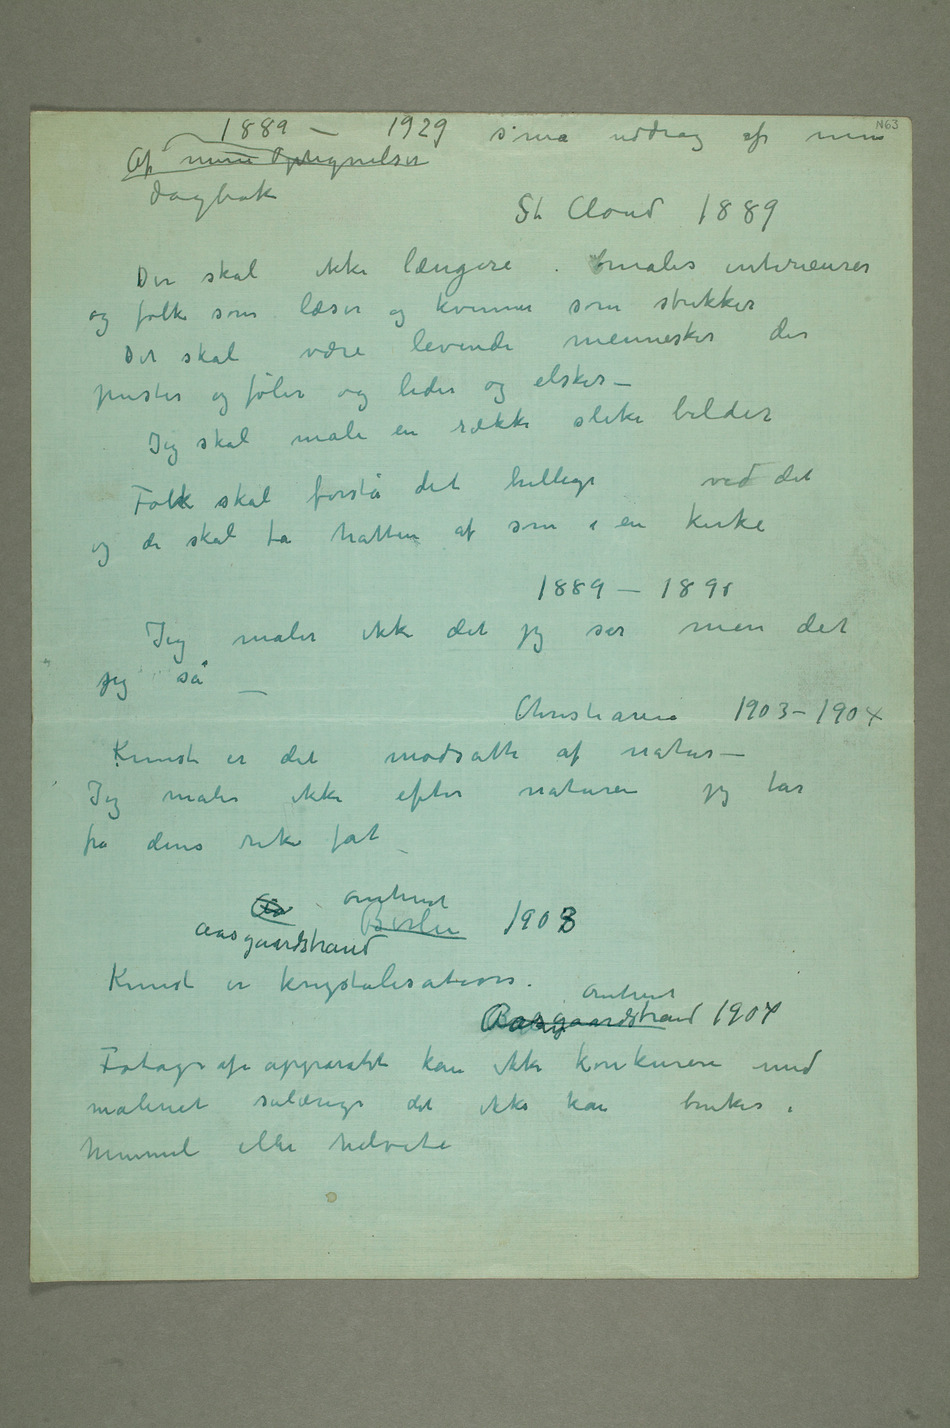 N63
1889 – 1929 små uddrag af min
Af mine Optegnelser
dagbok
St Cloud 1889
Der skal ikke længere males interieurer
og folk som læser og kvinner som strikker
Det skal være levende mennesker der
puster og føler og lider og elsker –
Jeg skal male en række slike bilder
Folk skal forstå det hellige ved det
og de skal ta hatten af som i en kirke
1889 – 1890
Jeg maler ikke det jeg ser men det
jeg så –
Christiania 1903–1904
Kunst er det modsatte af natur –
Jeg maler ikke efter naturen jeg tar
fra dens rike fat
Aa omtrent
Berlin 1908
Aasgaardstrand
Kunst er krystalisation.
omtrent
Aasgaardstrand 1904
Fotografi apparatet kan ikke konkurere med
maleriet sålænge det ikke kan brukes i
himmel eller helvete